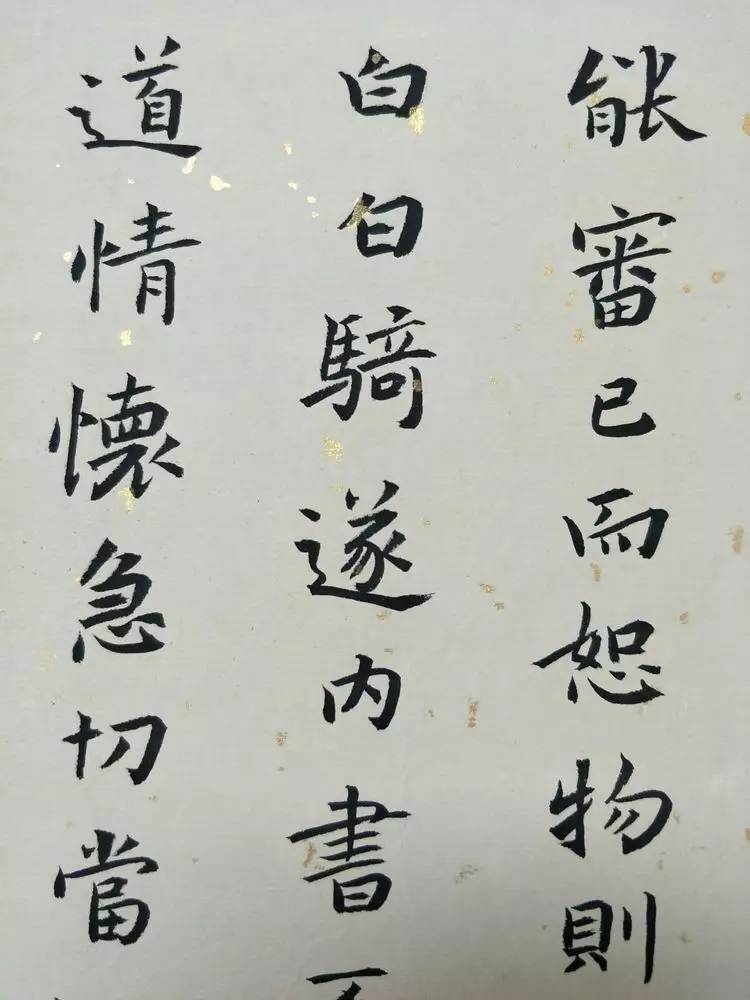 能審己而恕物則
白白騎遂内書
道情懷急切當